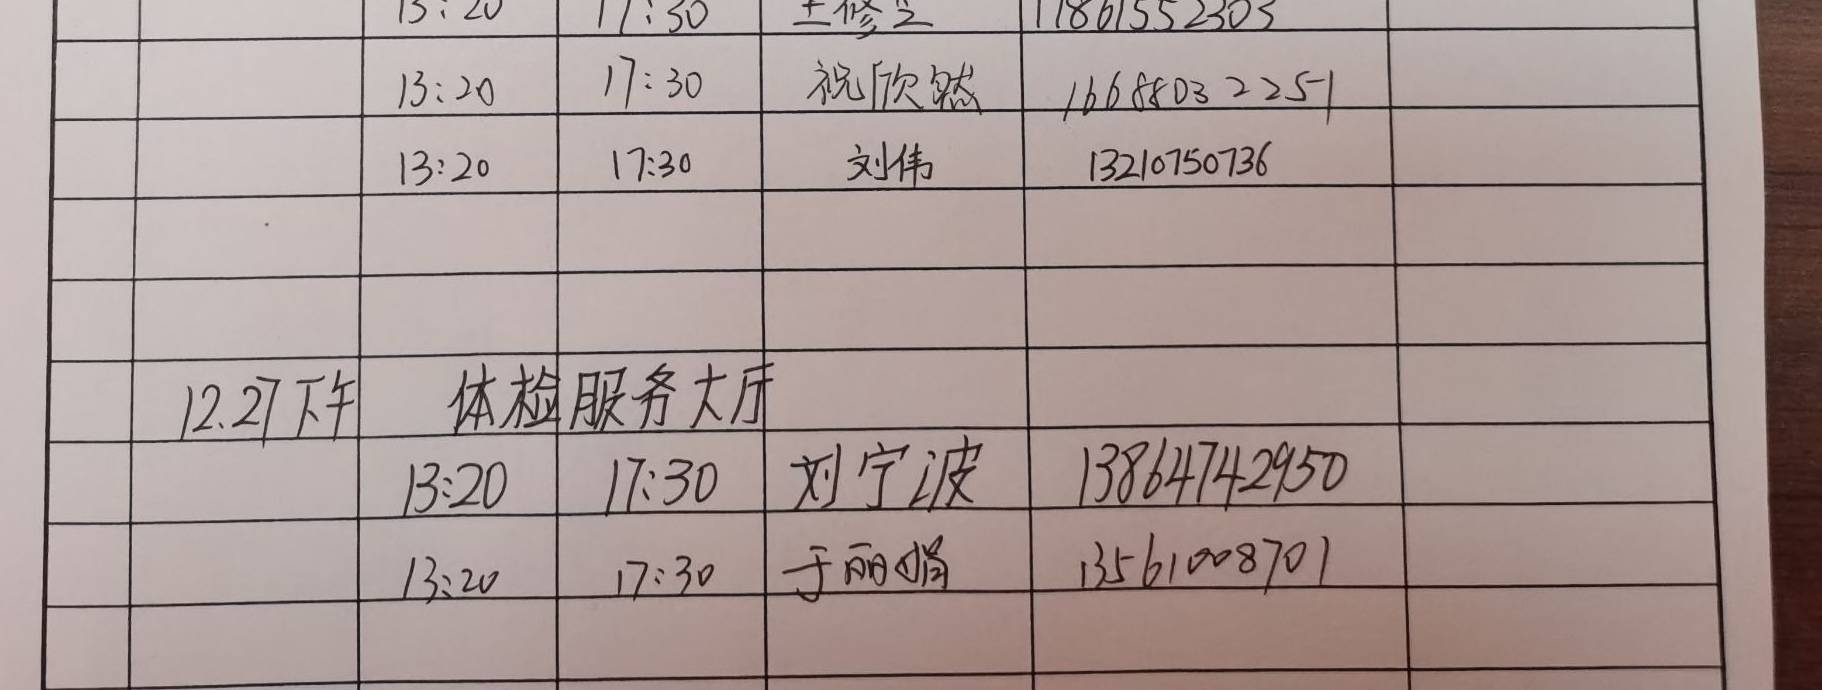 13:20 17:30
13:20 17:30 祝欣然 16688032251
13:20 17:30 刘伟 13210750736
12.27下午 体检服务大厅
13:20 17:30 刘宁波 13864742950
13:20 17:30 于丽娟 13561008701